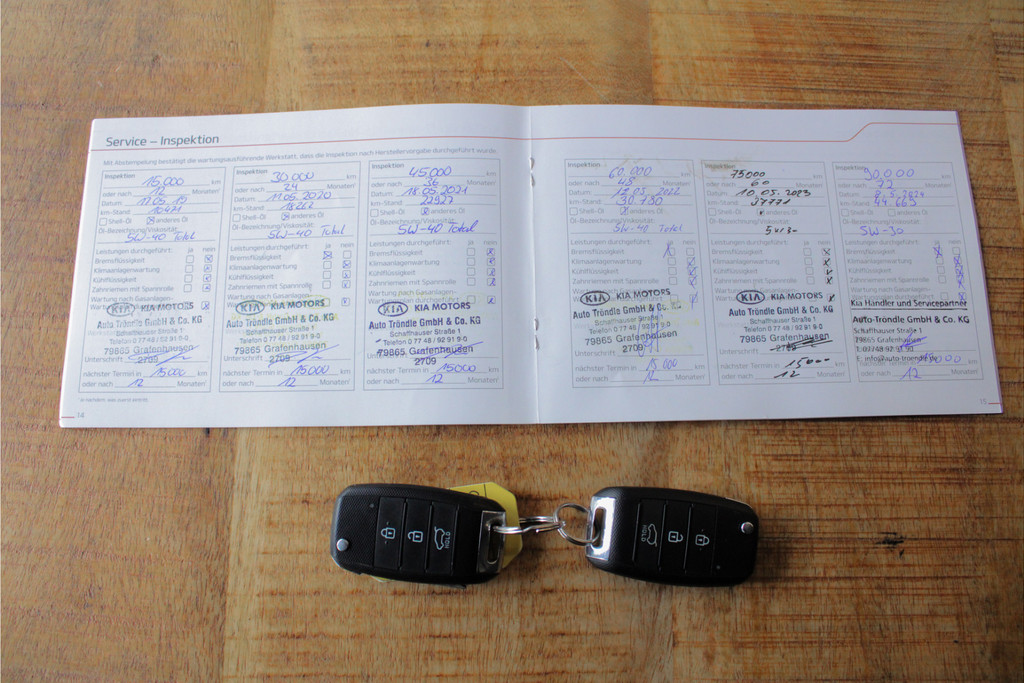 Service – Inspektion
Mit Abstempelung bestätigt die wartungsausführende Werkstatt, dass die Inspektion nach Herstellervorgabe durchgeführt wurde.
Inspektion
15,000 km
oder nach 12 Monaten¹
Datum
km-Stand: 10471
Shell-Öl anderes Öl
Öl-Bezeichnung/Viskosität:
5W-40 Total
Leistungen durchgeführt: ja nein
Bremsflüssigkeit
Klimaanlagenwartung
Kühlflüssigkeit
Zahnriemen mit Spannrolle
Wartung nach Gasanlagen-
KIA KIA MOTORS
Auto Tröndle GmbH & Co. KG
Schaffhauser Straße 1
Telefon 0 77 48 / 92 91 9-0
79865 Grafenhausen
Unterschrift 2709
nächster Termin in 15000 km
oder nach 12 Monaten¹
¹ je nachdem, was zuerst eintritt
14
Inspektion
30 000 km
oder nach 24 Monaten¹
Datum 11.05.2020
km-Stand: 18262
Shell-Öl anderes Öl
Öl-Bezeichnung/Viskosität:
5W-40 Total
Leistungen durchgeführt: ja nein
Bremsflüssigkeit
Klimaanlagenwartung
Kühlflüssigkeit
Zahnriemen mit Spannrolle
Wartung nach Gasanlagen-
KIA KIA MOTORS
Auto Tröndle GmbH & Co. KG
Schaffhauser Straße 1
Telefon 0 77 48 / 92 91 9-0
79865 Grafenhausen
Unterschrift 2709
nächster Termin in 15000 km
oder nach 12 Monaten¹
Inspektion
45,000 km
oder nach 36 Monaten¹
Datum: 18.05.2021
km-Stand: 22927
Shell-Öl anderes Öl
Öl-Bezeichnung/Viskosität:
5W-40 Total
Leistungen durchgeführt: ja nein
Bremsflüssigkeit
Klimaanlagenwartung
Kühlflüssigkeit
Zahnriemen mit Spannrolle
KIA KIA MOTORS
Auto Tröndle GmbH & Co. KG
Schaffhauser Straße 1
Telefon 0 77 48 / 92 91 9-0
79865 Grafenhausen
Unterschrift 2709
nächster Termin in 15000 km
oder nach 12 Monaten¹
Inspektion
60.000 km
oder nach 48 Monaten¹
Datum: 05 2022
km-Stand: 30 750
Shell-Öl anderes Öl
Öl-Bezeichnung/Viskosität:
5W-40 Total
Leistungen durchgeführt: ja nein
Bremsflüssigkeit
Klimaanlagenwartung
Kühlflüssigkeit
Zahnriemen mit Spannrolle
KIA KIA MOTORS
Auto Tröndle GmbH & Co. KG
Schaffhauser Straße 1
Telefon 0 77 48 / 92 91 9-0
79865 Grafenhausen
2709
nächster Termin in 15 000 km
oder nach Monaten¹
Inspektion
75000 km
oder nach 60 Monaten¹
Datum: 10.05.2023
km-Stand: 37771
Shell-Öl anderes Öl
Öl-Bezeichnung/Viskosität:
Leistungen durchgeführt: ja nein
Bremsflüssigkeit
Klimaanlagenwartung
Kühlflüssigkeit
Zahnriemen mit Spannrolle
KIA KIA MOTORS
Auto Tröndle GmbH & Co. KG
Schaffhauser Straße 1
Telefon 0 77 48 / 92 91 9-0
79865 Grafenhausen
Unterschrift 2709
nächster Termin in 15000 km
oder nach 12 Monaten¹
Inspektion
90.000 km
oder nach 72 Monaten¹
Datum: 2024
km-Stand: 44 669
Shell-Öl anderes Öl
Öl-Bezeichnung/Viskosität:
5W-30
Leistungen durchgeführt: ja nein
Bremsflüssigkeit
Klimaanlagenwartung
Kühlflüssigkeit
Zahnriemen mit Spannrolle
Kia Händler und Servicepartner
Auto-Tröndle GmbH & Co. KG
Schaffhauser Straße 1
79865 Grafenhausen
nächster Termin in km
oder nach 12 Monaten¹
15
HOLD
HOLD